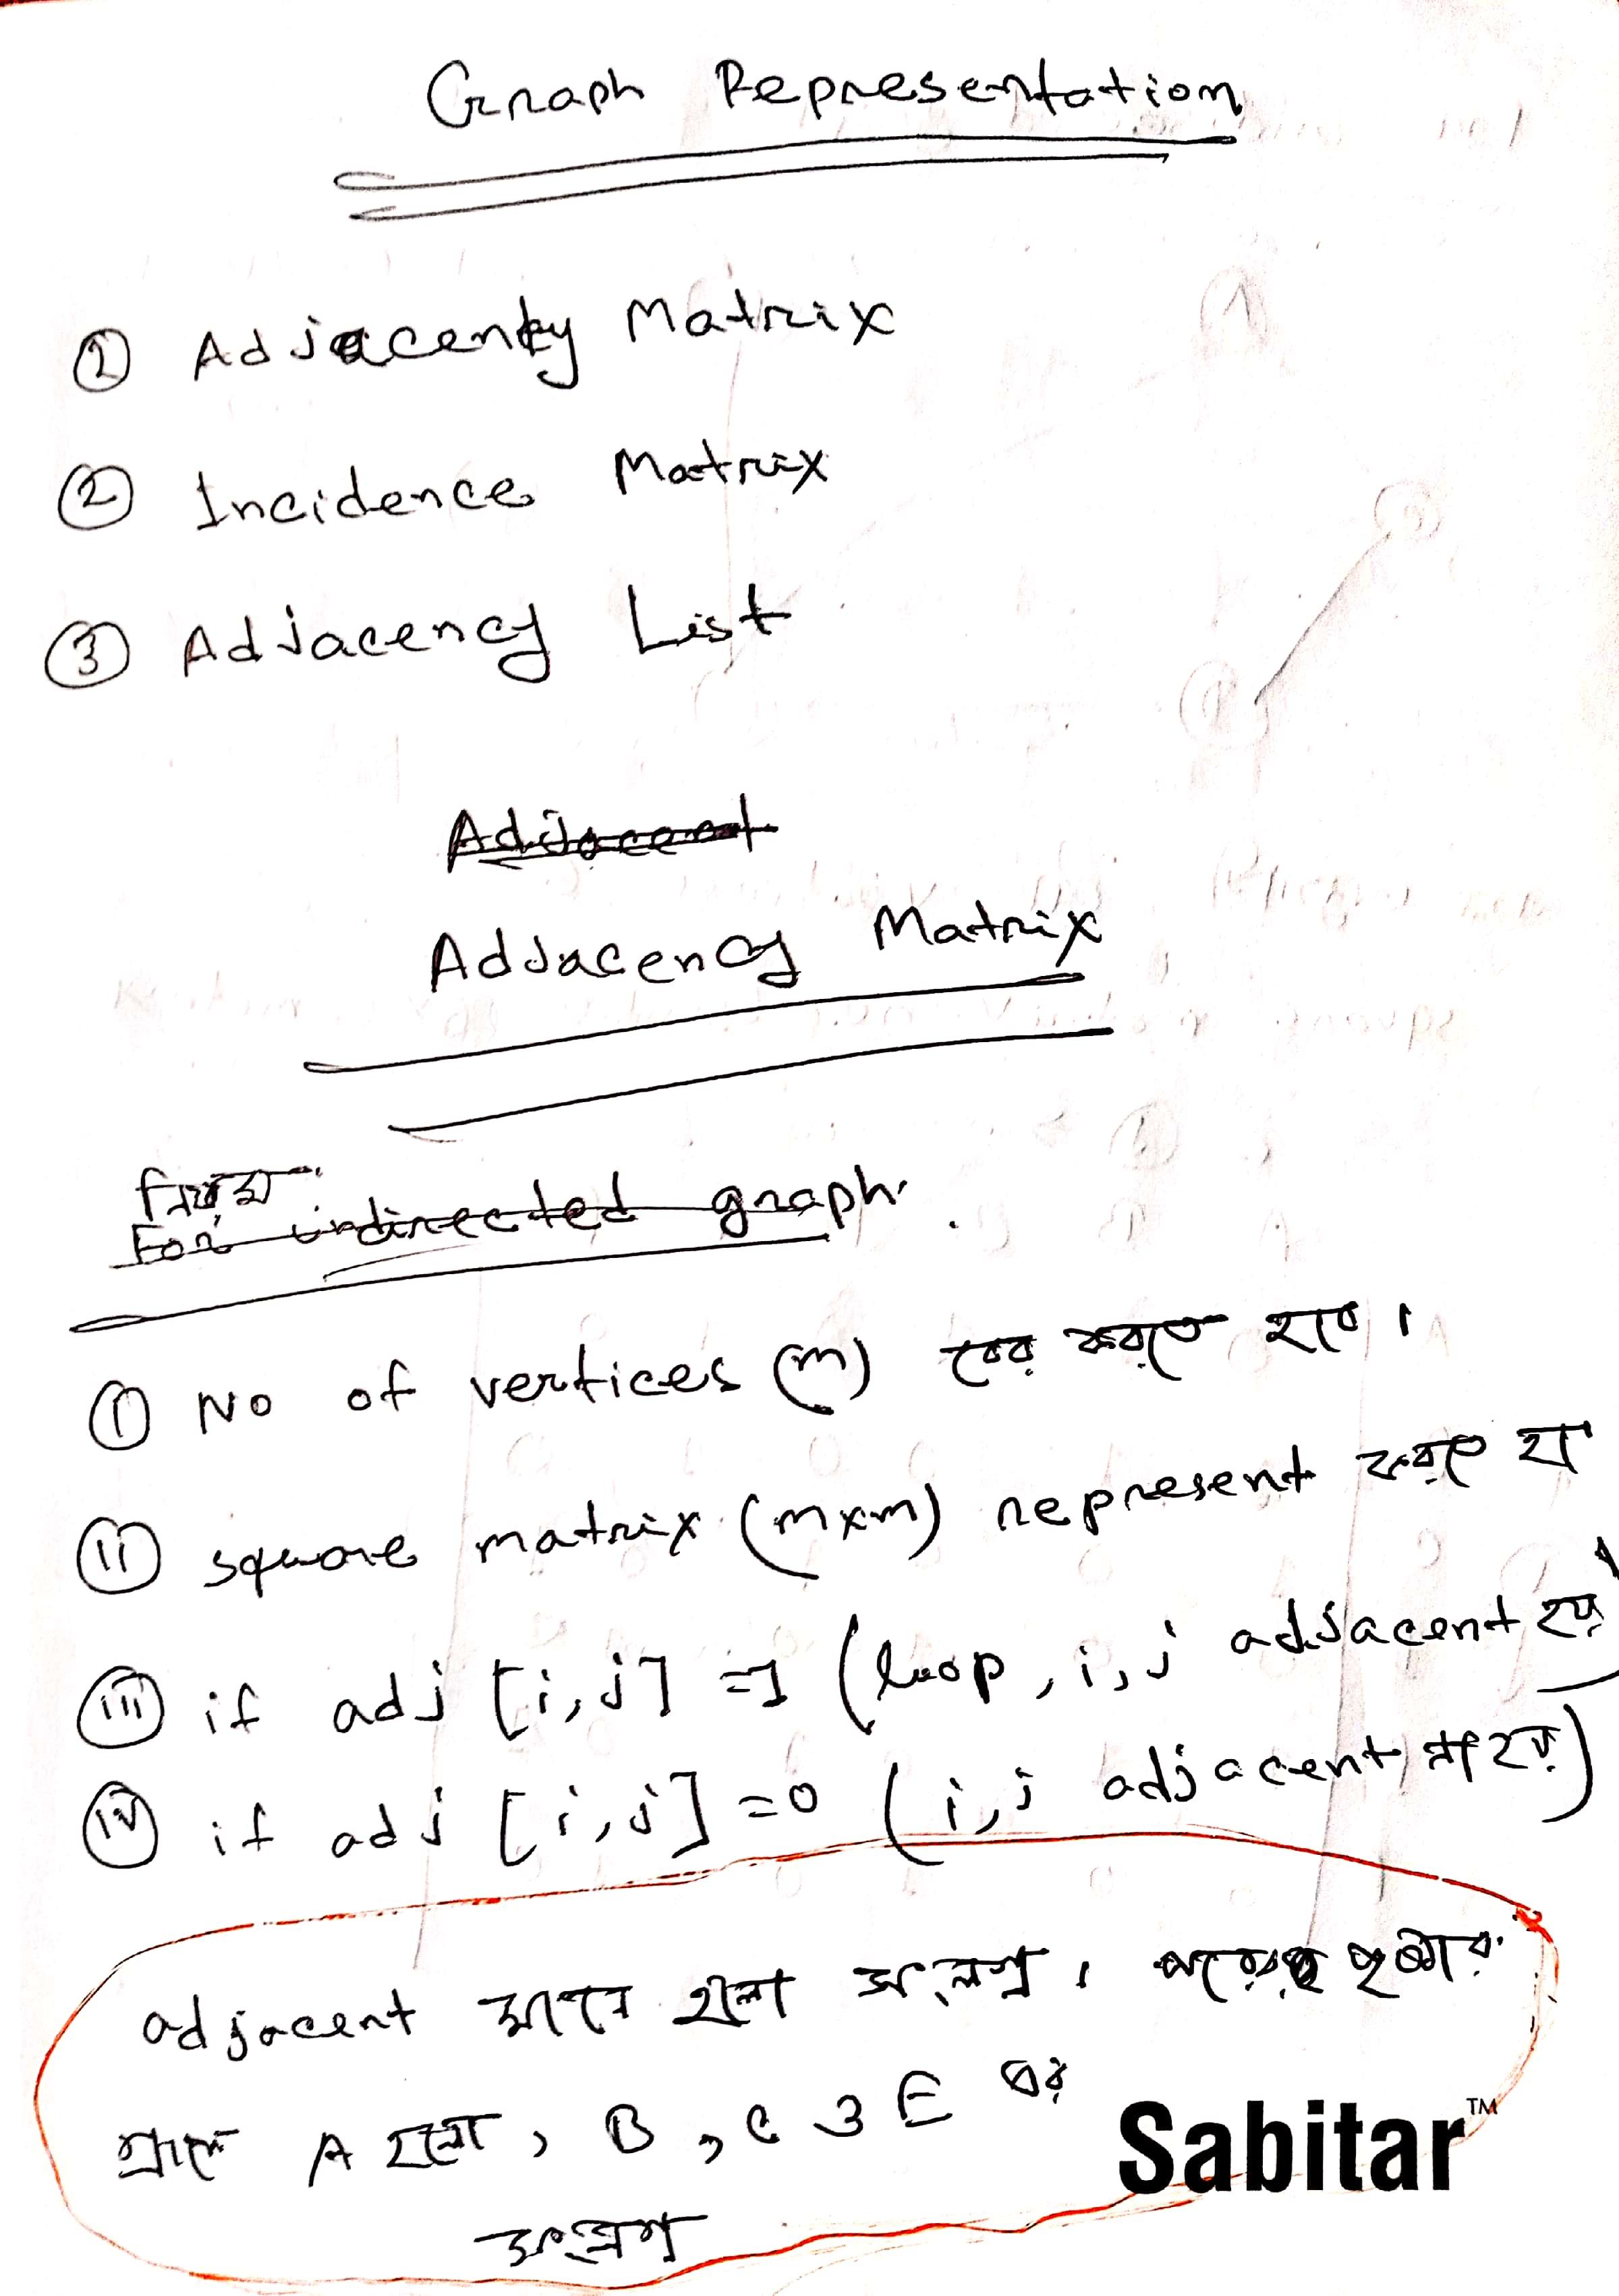 Graph Representation
① Adjacency Matrix
② Incidence Matrix
③ Adjacency List
Adjacent
Adjacency Matrix
নিয়ম:
For undirected graph.
ⓘ No of vertices (m) বের করতে হবে।
ⓘⓘ square matrix (mxm) represent করতে হ
ⓘⓘⓘ if adj [i,j] =1 (loop, i,j adjacent হয়)
ⓘⓥ if adj [i,j] =0 (i,j adjacent না হয়)
adjacent মানে হলো সংলগ্ন। পরের পৃষ্ঠার
গ্রাফে A হলো, B, C ও E এর
সংলগ্ন
Sabitar™